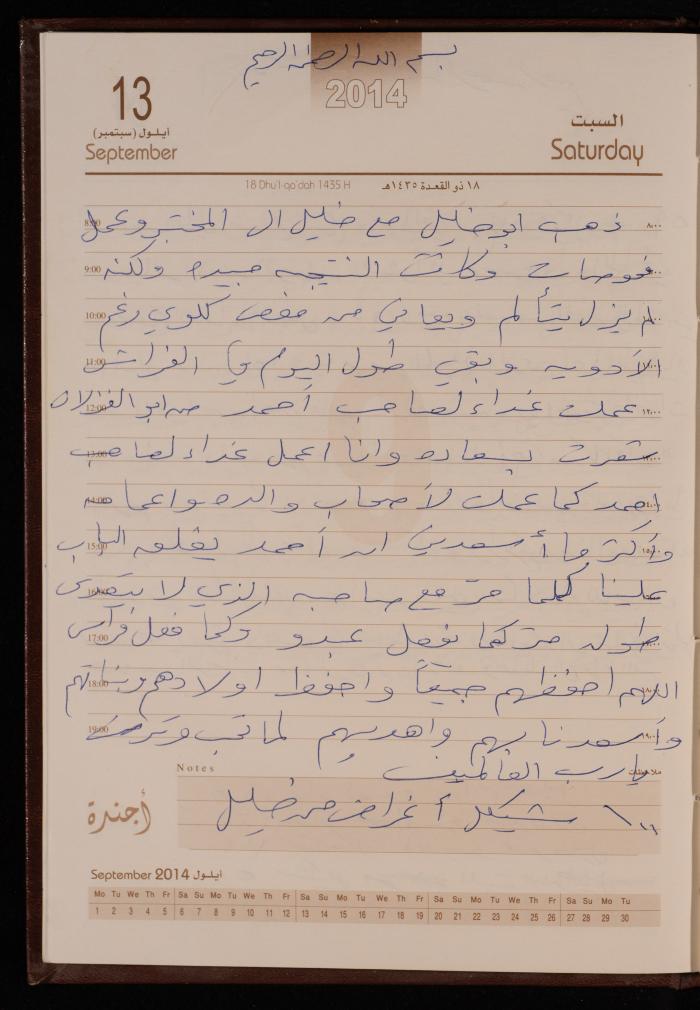 بسم الله الرحمن الرحيم
2014
13
أيلول (سبتمبر)
September
السبت
Saturday
18 Dhu'l-qa'dah 1435 H
١٨ ذو القعدة ١٤٣٥هـ
ذهب ابو خليل مع خليل الى المختبر وعمل
8:00
٨:٠٠
فحوصات وكانت النتيجه جيده ولكنه
9:00
لم يزل يتألم ويعاني من مغص كلوي رغم
10:00
الأدويه وبقي طول اليوم في الفراش
11:00
عملت غداء لصاحب أحمد من ابو الغزلان
12:00
١٢:٠٠
شعرت بسعاده وانا اعمل غداء لصاحب
13:00
احمد كما عملت لأصحاب والده واعمامه
14:00
وأكثر ما أسعدني ان أحمد يقلعه الباب
15:00
علينا كلما مر مع صاحبه الذي لا يتعدى
16:00
طوله متر كما نفعل عبدو وكما فعل فراس
17:00
اللهم احفظهم جميعاً واحفظ اولادهم وبناتهم
18:00
وأسعدنا بهم واهديهم لما تحب وترضى
19:00
يارب العالمين
Notes
ملاحظات
١٠٠ شيكل أغراض من خليل
أجندة
September 2014 أيلول
Mo Tu We Th Fr Sa Su Mo Tu We Th Fr Sa Su Mo Tu We Th Fr Sa Su Mo Tu We Th Fr Sa Su Mo Tu
1 2 3 4 5 6 7 8 9 10 11 12 13 14 15 16 17 18 19 20 21 22 23 24 25 26 27 28 29 30